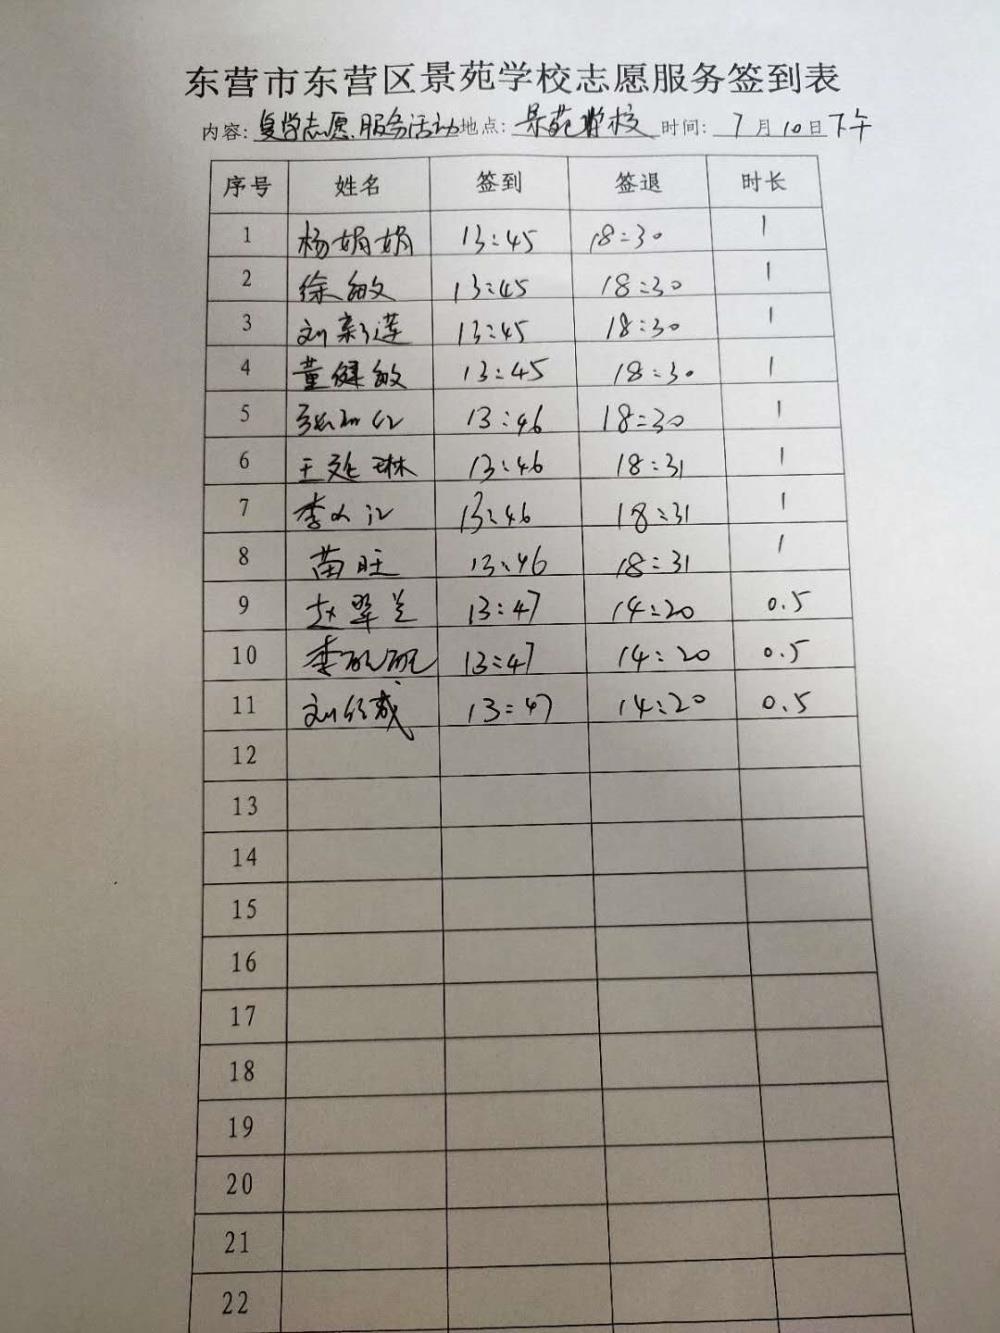 东营市东营区景苑学校志愿服务签到表
内容: 复学志愿服务活动 地点: 景苑学校 时间: 7月10日下午
序号 姓名 签到 签退 时长
1 杨娟娟 13:45 18:30 1
2 徐敏 13:45 18:30 1
3 刘彩莲 13:45 18:30 1
4 董健敏 13:45 18:30 1
5 13:46 18:30 1
6 王延琳 13:46 18:31 1
7 13:46 18:31 1
8 苗旺 13:46 18:31 1
9 赵翠兰 13:47 14:20 0.5
10 13:47 14:20 0.5
11 13:47 14:20 0.5
12
13
14
15
16
17
18
19
20
21
22